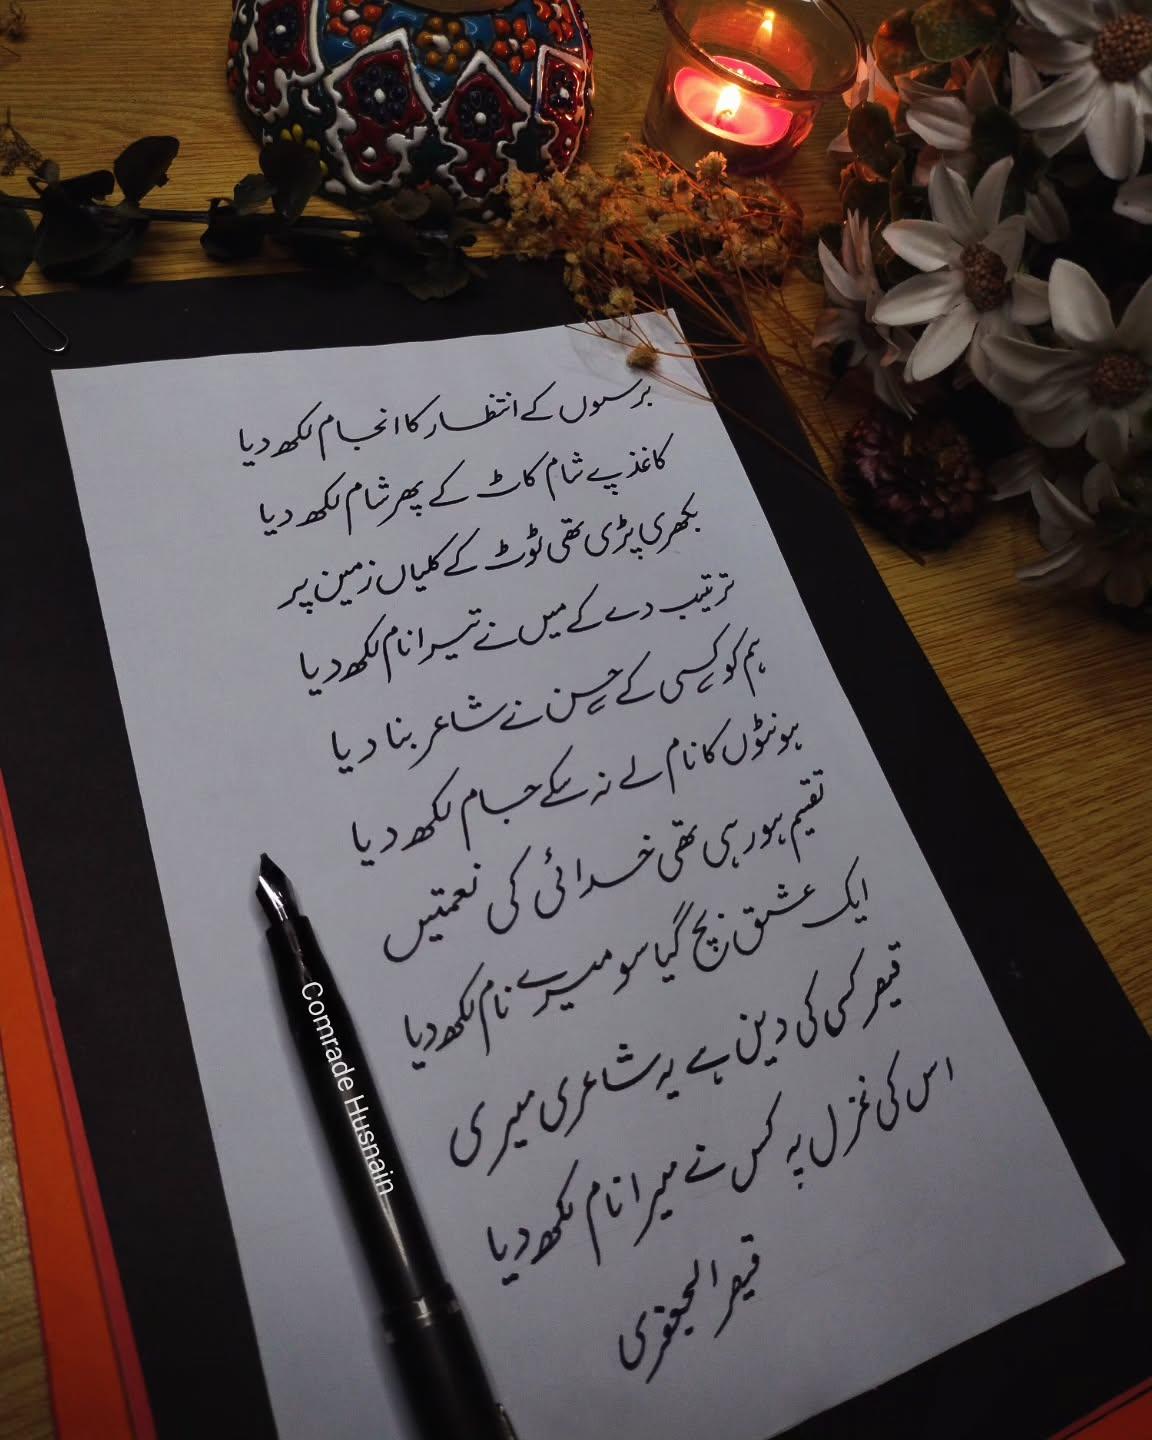 برسوں کے انتظار کا انجام لکھ دیا
کاغذ پے شام کاٹ کے پھر شام لکھ دیا
بکھری پڑی تھی ٹوٹ کے کلیاں زمین پر
ترتیب دے کے میں نے تیرا نام لکھ دیا
ہم کو کسی کے حسن نے شاعر بنا دیا
ہونٹوں کا نام لے نہ سکے جام لکھ دیا
تقسیم ہو رہی تھی خدائی کی نعمتیں
ایک عشق بچ گیا سو میرے نام لکھ دیا
قیصر کسی کی دین ہے یہ شاعری میری
اس کی غزل پہ کس نے میرا نام لکھ دیا
قیصر الجعفری
Comrade Husnain